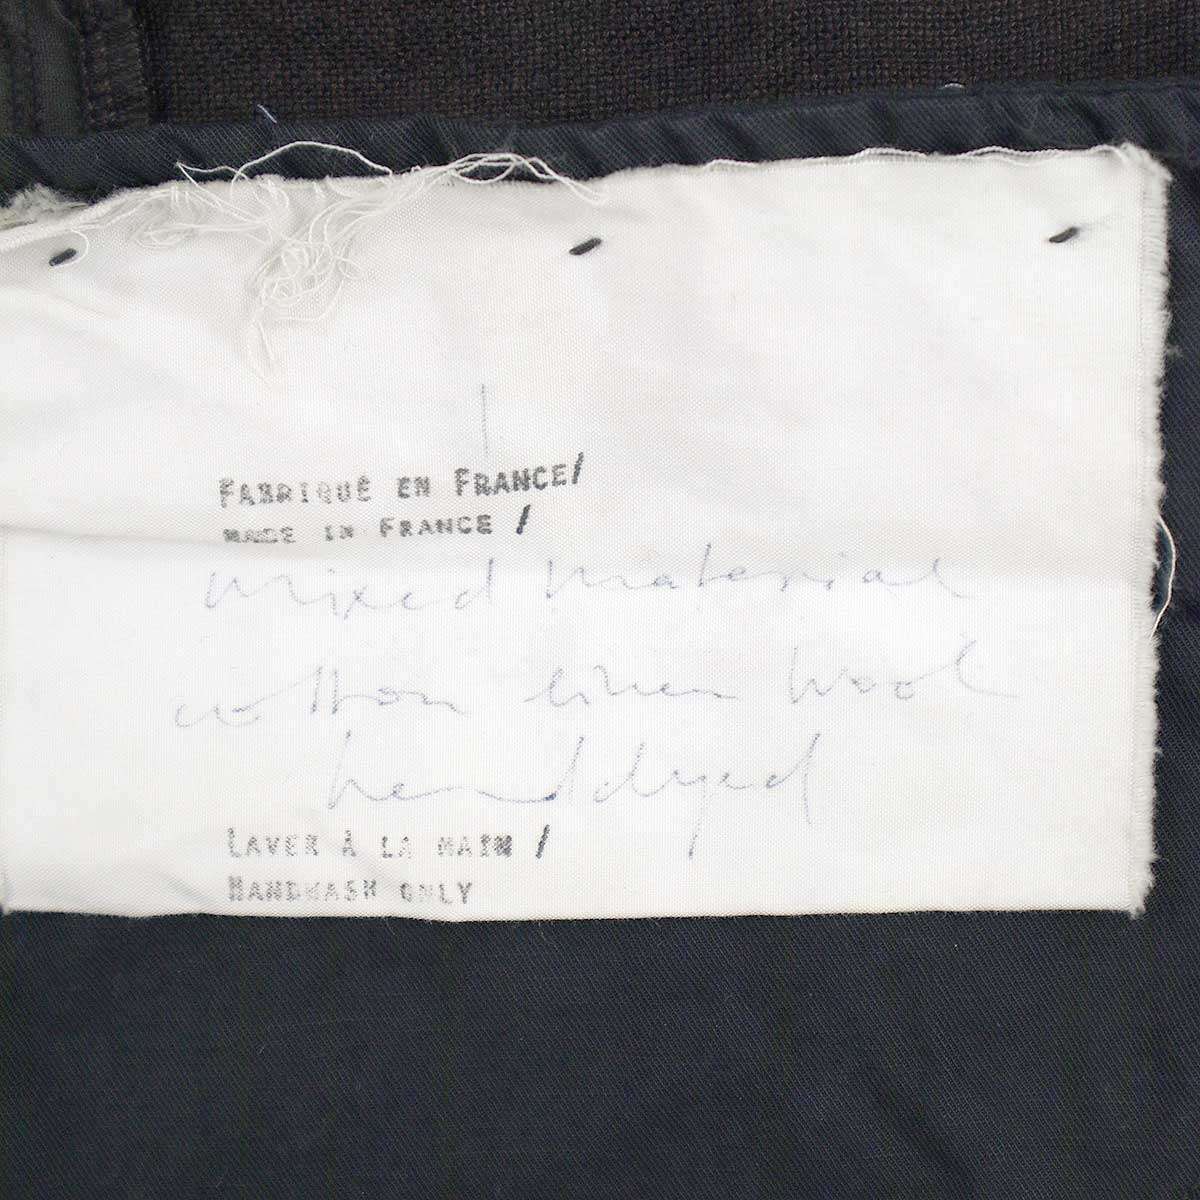 FABRIQUÉ EN FRANCE/
MADE IN FRANCE /
Mixed Material
cotton linen wool
hand dyed
LAVER À LA MAIN /
HANDWASH ONLY